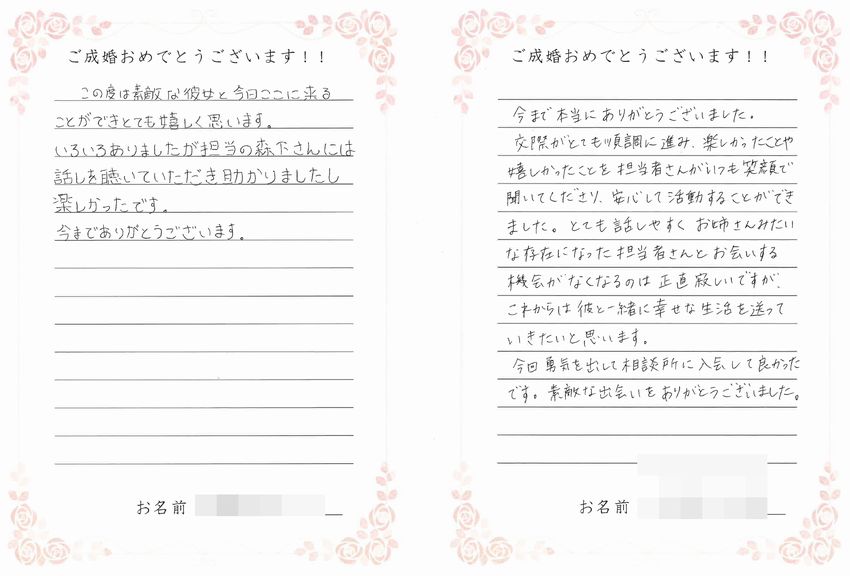 ご成婚おめでとうございます!!
この度は素敵な彼女と今日ここに来る
ことができとても嬉しく思います。
いろいろありましたが担当の森下さんには
話しを聴いていただき助かりましたし
楽しかったです。
今までありがとうございます。
お名前
ご成婚おめでとうございます!!
今まで本当にありがとうございました。
交際がとても順調に進み、楽しかったことや
嬉しかったことを担当者さんがいつも笑顔で
聞いてくださり、安心して活動することができ
ました。とても話しやすくお姉さんみたい
な存在になった担当者さんとお会いする
機会がなくなるのは正直寂しいですが、
これからは彼と一緒に幸せな生活を送って
いきたいと思います。
今回勇気を出して相談所に入会して良かった
です。素敵な出会いをありがとうございました。
お名前